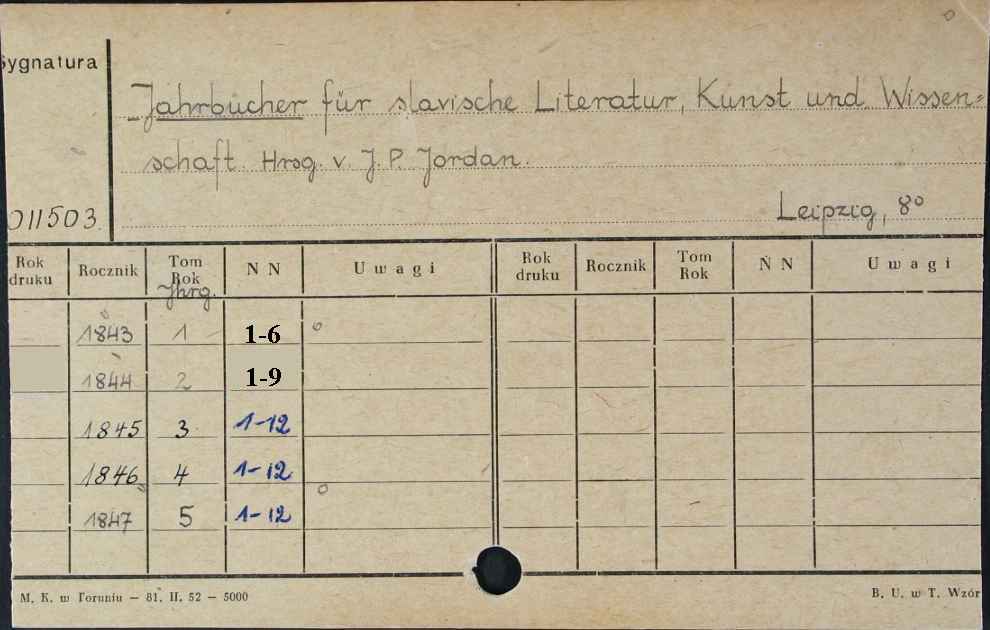 Sygnatura
Jahrbücher für slavische Literatur, Kunst und Wissen=
schaft. Hrsg. v. J. P. Jordan.
011503.
Leipzig, 8º
Rok druku Rocznik Tom Rok Jhrg. N N Uwagi Rok druku Rocznik Tom Rok N N Uwagi
1843 1 1-6
1844 2 1-9
1845 3 1-12
1846 4 1-12
1847 5 1-12
M. K. w Toruniu — 81. II. 52 — 5000 B. U. w T. Wzór